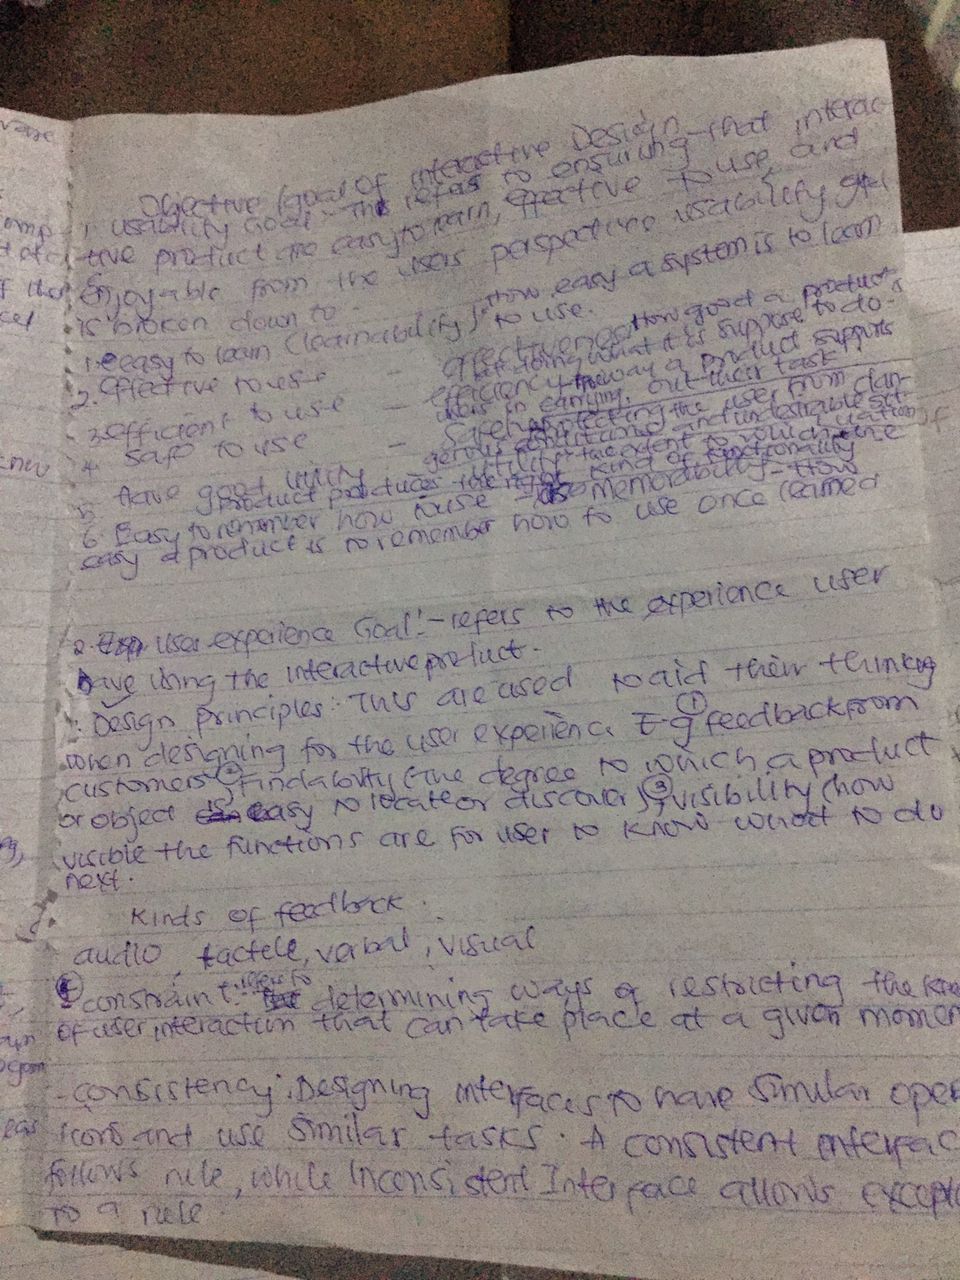 Objective/goal of interactive Design
1. usability Goal - The refers to ensuring that interac-
tive product are easy to learn, effective to use, and
Enjoyable from the users perspective usability goal
is broken down to.
1. easy to learn (learnability) - How easy a system is to learn
to use.
2. effective to use - effectiveness How good a product is
at doing what it is suppose to do.
3. efficient to use - efficiency the way a product supports
users in carrying out their task
4. safe to use - Safety protecting the user from dan-
gerous conditions and undesirable situation
5. Have good utility - utility the extent to which the
product produces the right kind of functionality
6. Easy to remember how to use - memorability - How
easy a product is to remember how to use once learned
2. user experience Goal:- refers to the experience user
have using the interactive product.
: Design principles: This are used to aid their thinking
when designing for the user experience E-g ① feedback from
customers ② Findability (the degree to which a product
or object easy to locate or discover) ③ visibility (how
visible the functions are for user to know what to do
next.
kinds of feedback.
audio, tactele, verbal, visual
constraint: refers to determining ways of restricting the
of user interaction that can take place at a given
- consistency: Designing interfaces to have similar
and use similar tasks. A consistent
follows rule, while Inconsistent Interface allows
to a rule.